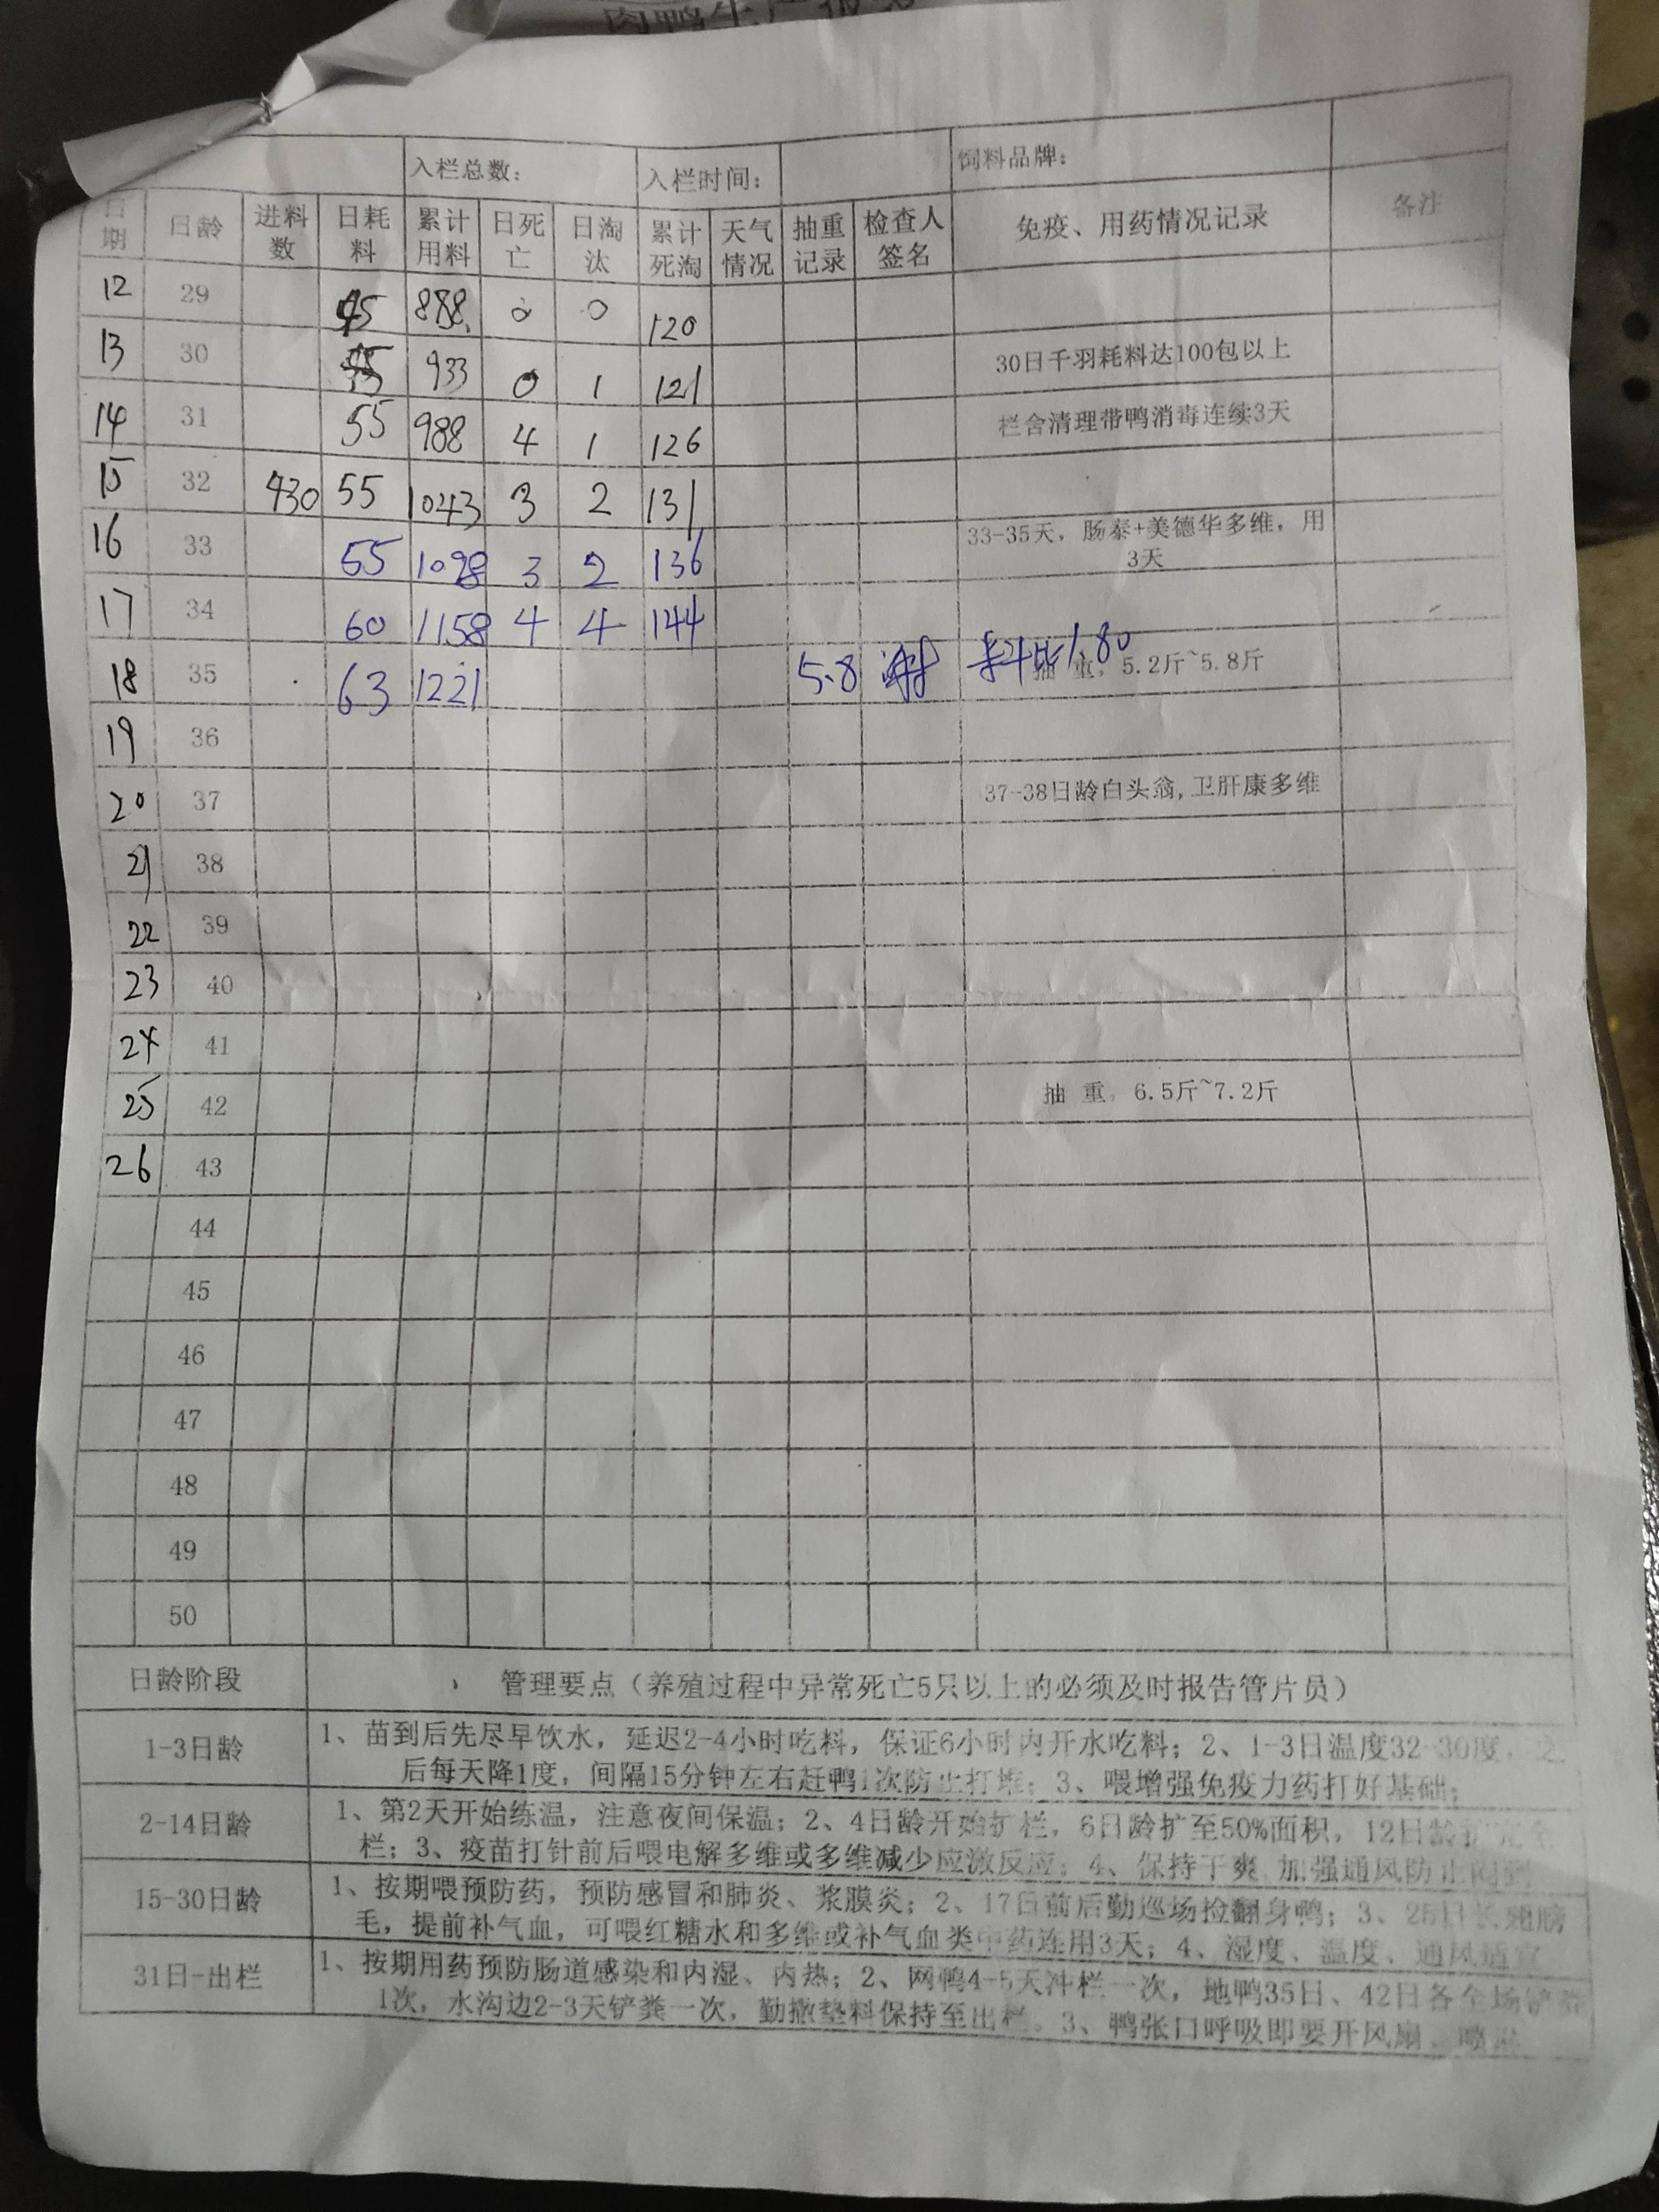 入栏总数： 入栏时间： 饲料品牌：
日期 日龄 进料数 日耗料 累计用料 日死亡 日淘汰 累计死淘 天气情况 抽重记录 检查人签名 免疫、用药情况记录 备注
12 29 45 888 0 0 120
13 30 45 933 0 1 121 30日千羽耗料达100包以上
14 31 55 988 4 1 126 栏舍清理带鸭消毒连续3天
15 32 430 55 1043 3 2 131
16 33 55 1098 3 2 136 33-35天，肠泰+美德华多维，用3天
17 34 60 1158 4 4 144
18 35 63 1221 5.8 料比1.80 抽 重，5.2斤~5.8斤
19 36
20 37 37-38日龄白头翁,卫肝康多维
21 38
22 39
23 40
24 41
25 42 抽 重，6.5斤~7.2斤
26 43
44
45
46
47
48
49
50
日龄阶段 管理要点（养殖过程中异常死亡5只以上的必须及时报告管片员）
1-3日龄 1、苗到后先尽早饮水，延迟2-4小时吃料，保证6小时内开水吃料；2、1-3日温度32-30度，
后每天降1度，间隔15分钟左右赶鸭1次防止打堆；3、喂增强免疫力药打好基础；
2-14日龄 1、第2天开始练温，注意夜间保温；2、4日龄开始扩栏，6日龄扩至50%面积，12日龄扩完全
栏；3、疫苗打针前后喂电解多维或多维减少应激反应；4、保持干爽 加强通风防止
15-30日龄 1、按期喂预防药，预防感冒和肺炎、浆膜炎；2、17日前后勤巡场捡翻身鸭；3、25日长翅膀
毛，提前补气血，可喂红糖水和多维或补气血类中药连用3天；4、湿度、温度、通风适宜
31日-出栏 1、按期用药预防肠道感染和内湿、内热；2、网鸭4-5天冲栏一次，地鸭35日、42日各全场铲粪
1次，水沟边2-3天铲粪一次，勤撒垫料保持至出栏。3、鸭张口呼吸即要开风扇、喷淋